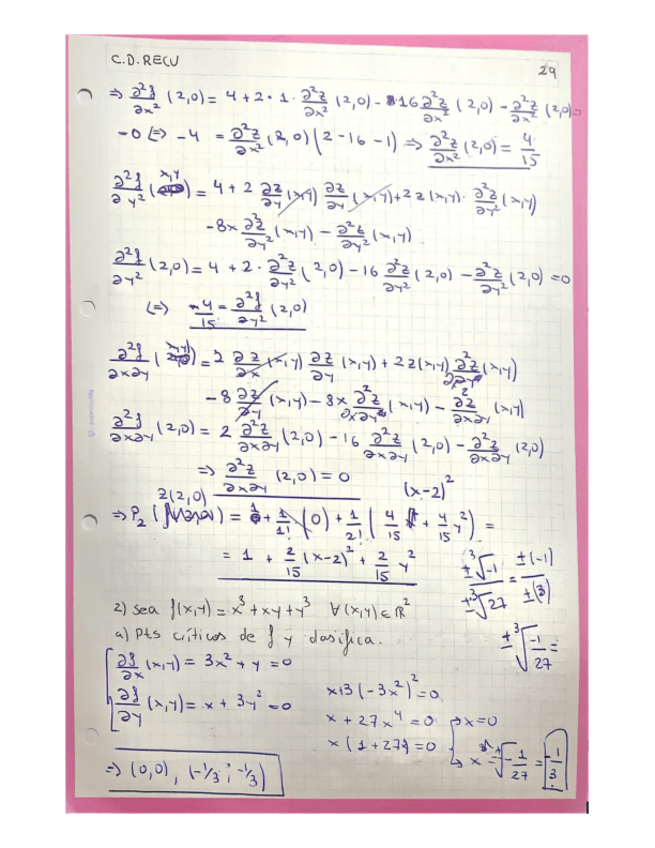 C.D. RECU
29
⇒ ∂²f/∂x² (2,0) = 4 + 2·1·∂²z/∂x² (2,0) - 16 ∂²z/∂x² (2,0) - ∂²z/∂x² (2,0) =
-0 (=) -4 = ∂²z/∂x² (2,0) (2-16-1) ⇒ ∂²z/∂x² (2,0) = 4/15
∂²f/∂y² (x,y) = 4 + 2 ∂z/∂y (x,y) ∂z/∂y (x,y) + 2z(x,y)· ∂²z/∂y² (x,y)
-8x ∂²z/∂y² (x,y) - ∂²z/∂y² (x,y)
∂²f/∂y² (2,0) = 4 + 2· ∂²z/∂y² (2,0) - 16 ∂²z/∂y² (2,0) - ∂²z/∂y² (2,0) = 0
(=) 4/15 = ∂²f/∂y² (2,0)
∂²f/∂x∂y (x,y) = 2 ∂z/∂x (x,y) ∂z/∂y (x,y) + 2z(x,y) ∂²z/∂x∂y (x,y)
-8 ∂z/∂y (x,y) - 8x ∂²z/∂x∂y (x,y) - ∂²z/∂x∂y (x,y)
∂²f/∂x∂y (2,0) = 2 ∂²z/∂x∂y (2,0) - 16 ∂²z/∂x∂y (2,0) - ∂²z/∂x∂y (2,0)
⇒ ∂²z/∂x∂y (2,0) = 0
z(2,0)
(x-2)²
⇒ P₂ ( ) = 1 + 1/1! (0) + 1/2! ( 4/15 + 4/15 y²) =
= 1 + 2/15 (x-2)² + 2/15 y²
±∛-1 / ±∛27 = ±(-1) / ±(3)
± ∛(-1/27) =
2) sea f(x,y) = x³ + xy + y³ ∀(x,y) ∈ ℝ²
a) Pts críticos de f y clasifica.
∂f/∂x (x,y) = 3x² + y = 0
∂f/∂y (x,y) = x + 3y² = 0
x+3(-3x²)² = 0
x + 27x⁴ = 0 → x=0
x (1+27 ) = 0 → x = ∛(-1/27) = -1/3
⇒ (0,0), (-1/3, -1/3)